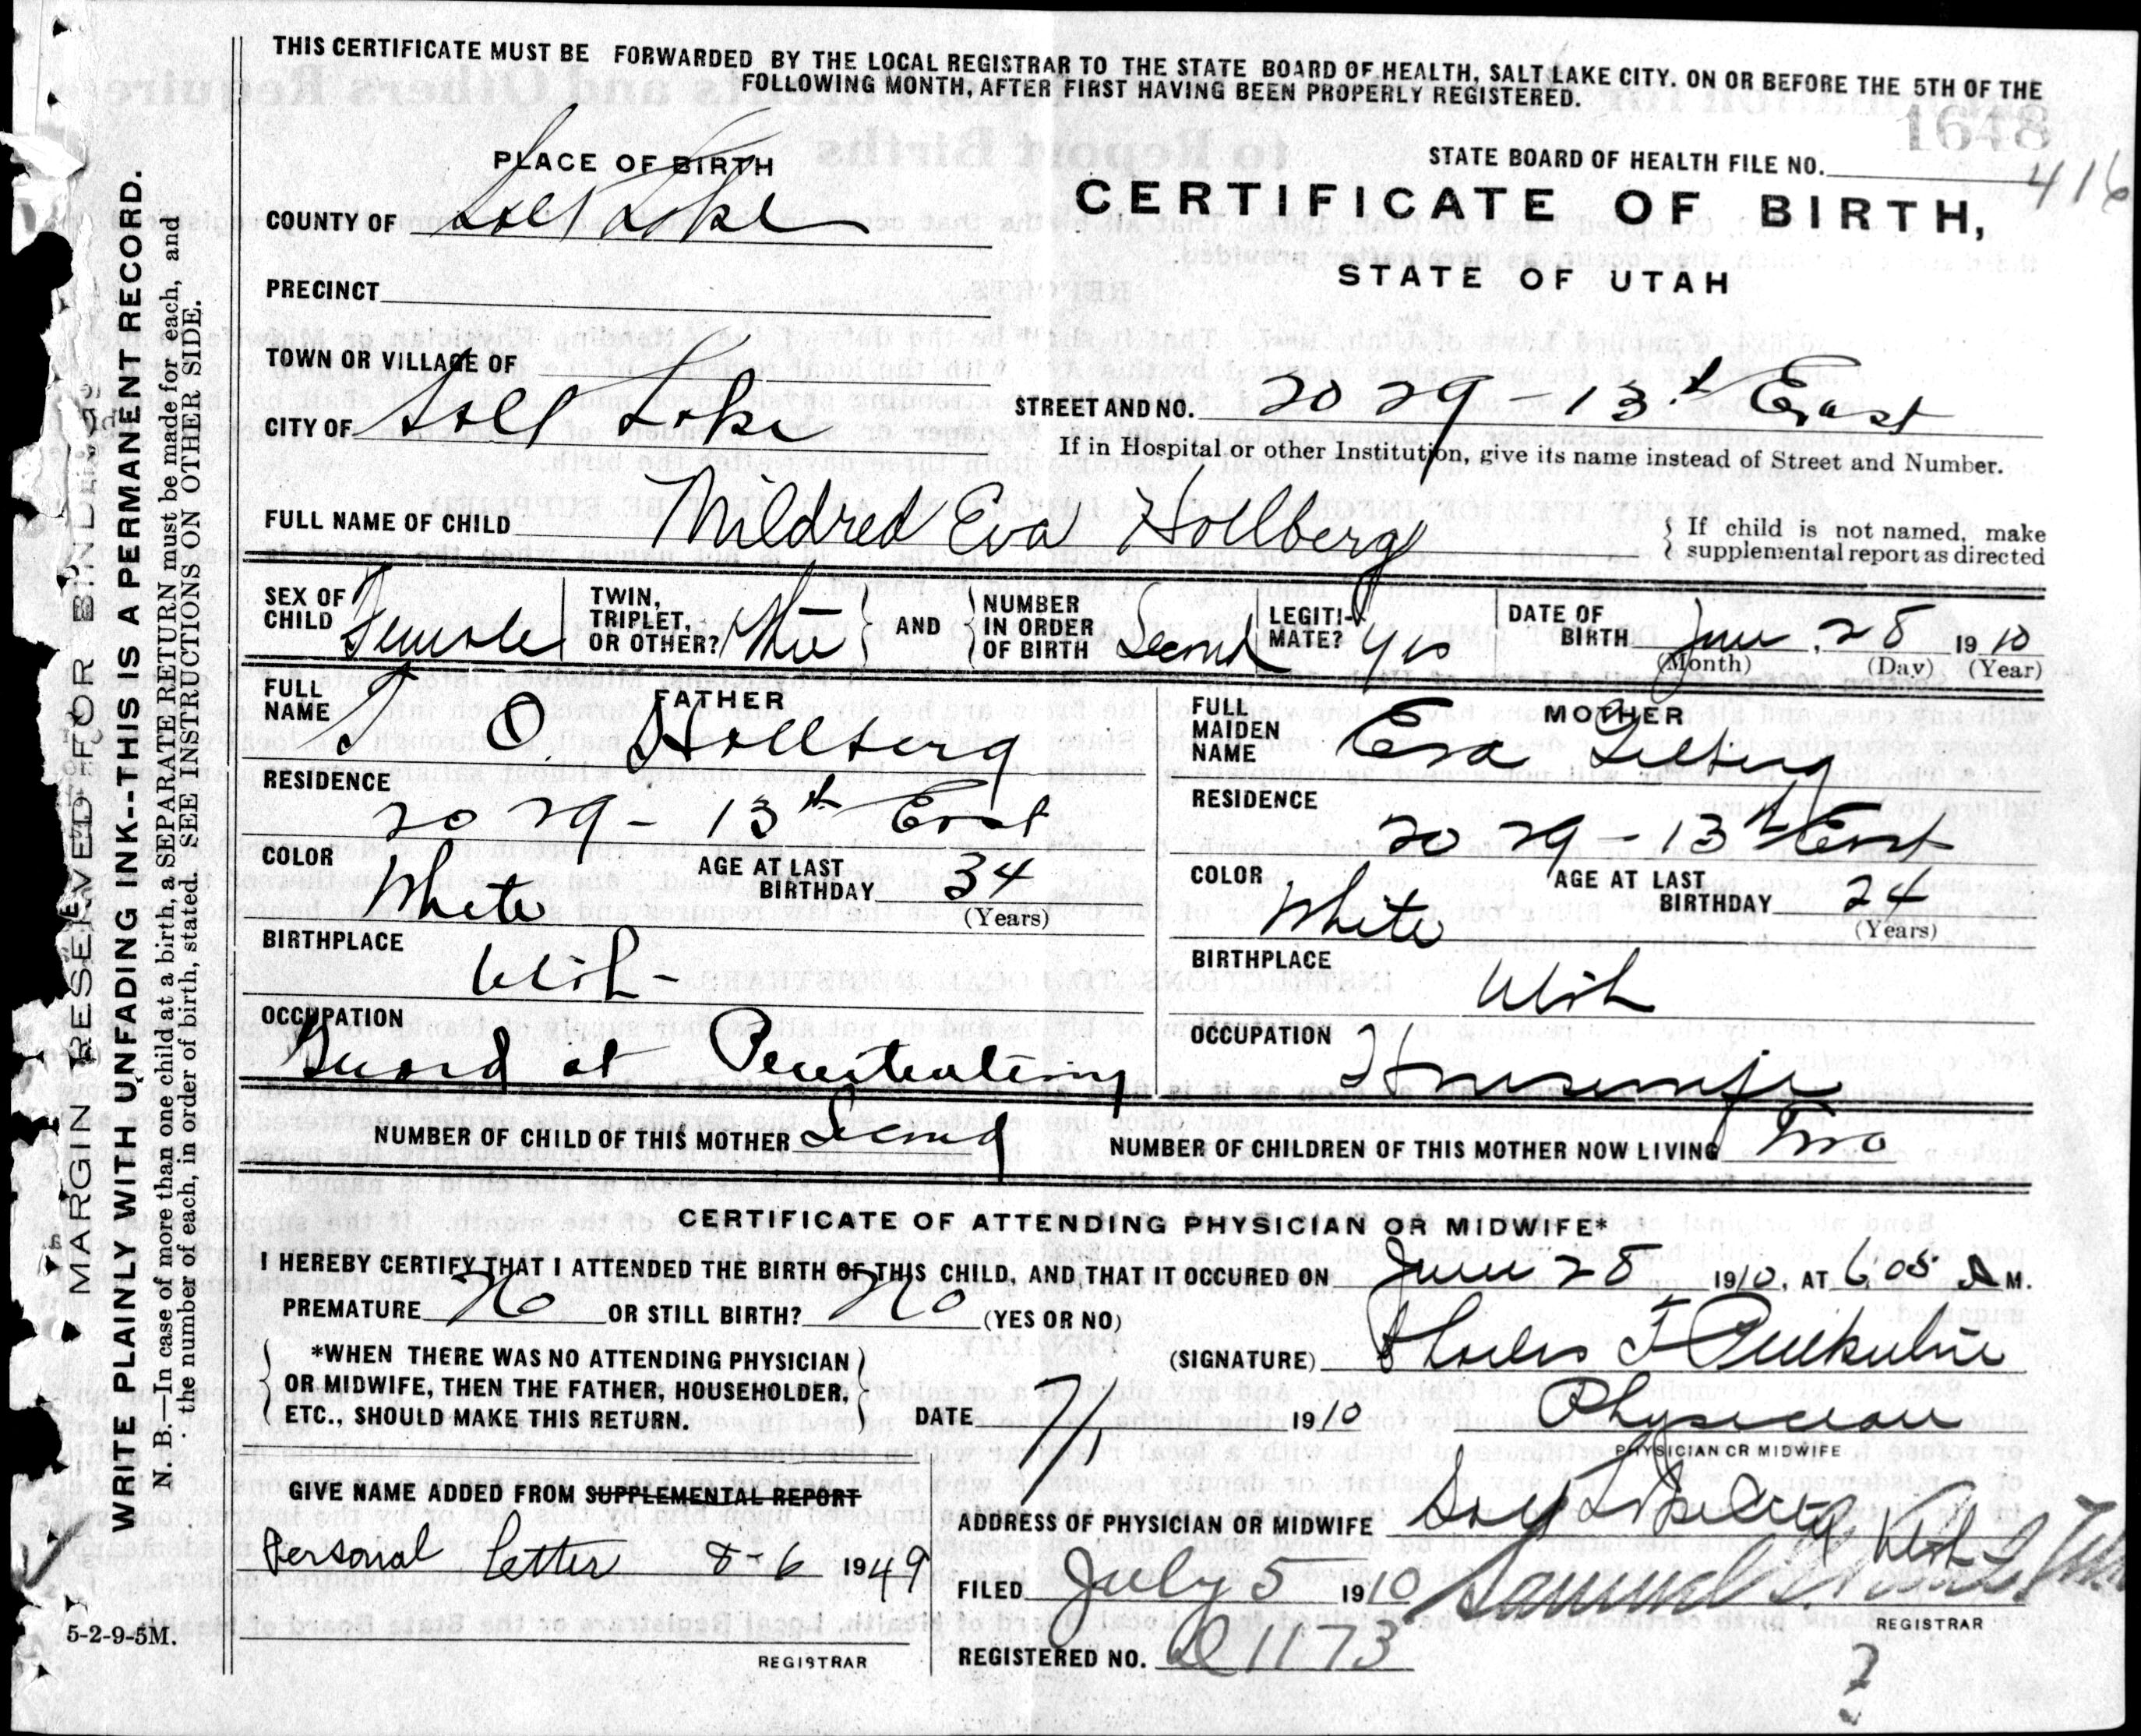 THIS CERTIFICATE MUST BE FORWARDED BY THE LOCAL REGISTRAR TO THE STATE BOARD OF HEALTH, SALT LAKE CITY. ON OR BEFORE THE 5TH OF THE
FOLLOWING MONTH, AFTER FIRST HAVING BEEN PROPERLY REGISTERED.
1648
PLACE OF BIRTH
STATE BOARD OF HEALTH FILE NO. 416
COUNTY OF Salt Lake
CERTIFICATE OF BIRTH,
STATE OF UTAH
PRECINCT
TOWN OR VILLAGE OF
CITY OF Salt Lake
STREET AND NO. 2029 - 13th East
If in Hospital or other Institution, give its name instead of Street and Number.
FULL NAME OF CHILD Mildred Eva Hollberg
If child is not named, make
supplemental report as directed
SEX OF CHILD Female
TWIN, TRIPLET, OR OTHER?
AND
NUMBER IN ORDER OF BIRTH Second
LEGITIMATE? yes
DATE OF BIRTH June 28 1910
(Month) (Day) (Year)
FATHER
FULL NAME O Hollberg
RESIDENCE 2029 - 13th East
COLOR White
AGE AT LAST BIRTHDAY 34
(Years)
BIRTHPLACE Utah
OCCUPATION Guard at Penitentiary
MOTHER
FULL MAIDEN NAME Eva
RESIDENCE 2029 - 13th East
COLOR White
AGE AT LAST BIRTHDAY 24
(Years)
BIRTHPLACE Utah
OCCUPATION Housewife
NUMBER OF CHILD OF THIS MOTHER Second
NUMBER OF CHILDREN OF THIS MOTHER NOW LIVING Two
CERTIFICATE OF ATTENDING PHYSICIAN OR MIDWIFE*
I HEREBY CERTIFY THAT I ATTENDED THE BIRTH OF THIS CHILD, AND THAT IT OCCURED ON June 28 1910, AT 6 05 A M.
PREMATURE No OR STILL BIRTH? No (YES OR NO)
*WHEN THERE WAS NO ATTENDING PHYSICIAN
OR MIDWIFE, THEN THE FATHER, HOUSEHOLDER,
ETC., SHOULD MAKE THIS RETURN.
(SIGNATURE)
DATE 7/1 1910
Physician
PHYSICIAN OR MIDWIFE
GIVE NAME ADDED FROM SUPPLEMENTAL REPORT
Personal Letter 8-6 1949
REGISTRAR
ADDRESS OF PHYSICIAN OR MIDWIFE Salt Lake City Utah
FILED July 5 1910 Samuel
REGISTRAR
REGISTERED NO. 1173
?
5-2-9-5M.
MARGIN RESERVED FOR BINDING
WRITE PLAINLY WITH UNFADING INK--THIS IS A PERMANENT RECORD.
N. B.—In case of more than one child at a birth, a SEPARATE RETURN must be made for each, and
the number of each, in order of birth, stated. SEE INSTRUCTIONS ON OTHER SIDE.